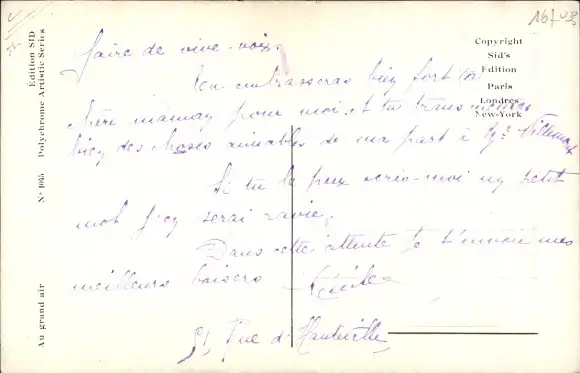 faire de vive-voix.
Tu embrasseras bien fort ta
chère maman pour moi, et tu transmettras
bien des choses aimables de ma part à
Si tu le peux écris-moi un petit
mot j'en serai ravie.
Dans cette attente je t'envoie mes
meilleurs baisers
51, Rue d'Hauteville
Copyright
Sid's
Edition
Paris
Londres
New-York
Edition SID
Polychrome Artistic Series
N° 1085
Au grand air